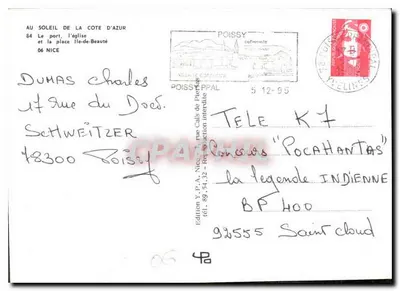 AU SOLEIL DE LA COTE D'AZUR
84 Le port, l'église
et la place Ile-de-Beauté
06 NICE
POISSY
POISSY PPAL
5-12-95
DUMAS Charles
17 Rue du Doct.
SCHWEITZER
78300 Poissy
TELE K7
Concours "POCAHANTAS"
la legende INDIENNE
BP 400
92555 Saint Cloud
Edition Y.P.A. Nice
tél. 89.54.32 - Reproduction interdite
06